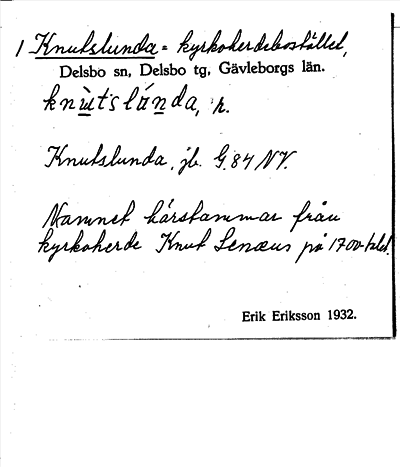 1 Knutslunda = kyrkoherdebostället,
Delsbo sn, Delsbo tg, Gävleborgs län.
knùtslánda, h.
Knutslunda, jb. G.84 NV.
Namnet härstammar från
kyrkoherde Knut Lenæus på 1700-talet.
Erik Eriksson 1932.